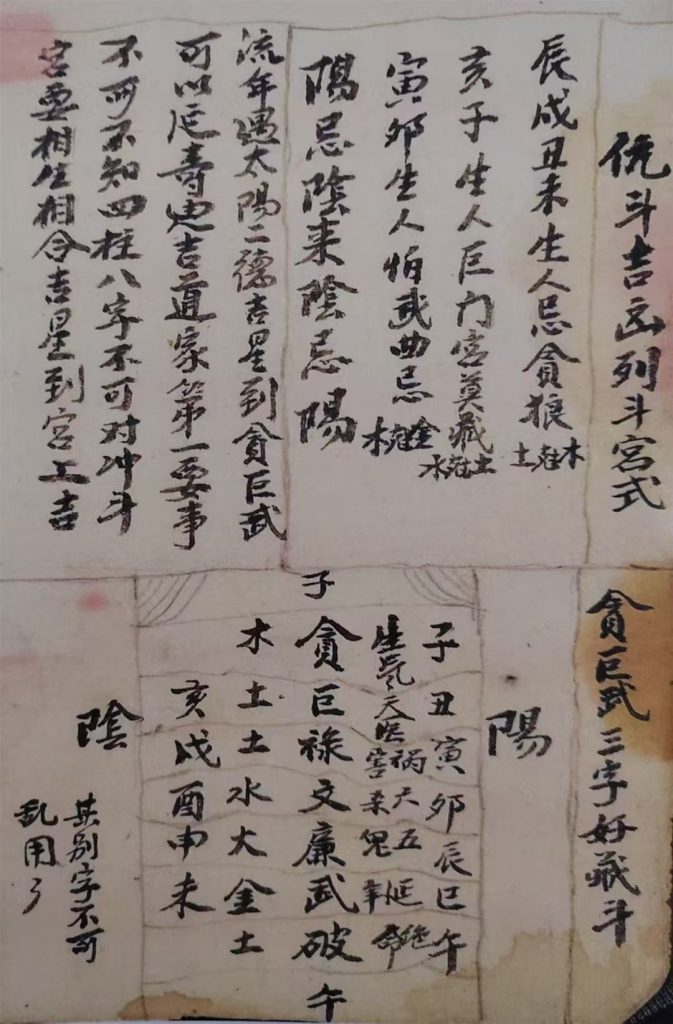 斗吉凶列斗宮式
辰戌丑未生人忌貪狼 木尅土
亥子生人巨门宮莫藏 土尅水
寅卯生人怕武曲忌 金尅木
陽忌陰来陰忌陽
流年遇太陽二德吉星到貪巨武
可以延寿迪吉道家第一要事
不可不知四柱八字不可对冲斗
宮要相生相合吉星到宮上吉
貪巨武三字好藏斗
陽
子丑寅卯辰巳午
生氣 天医 祸害 六杀 五鬼 延年 绝命
子
貪巨祿文廉武破
午
木土土水火金土
亥戌酉申未
陰
其别字不可
乱用了